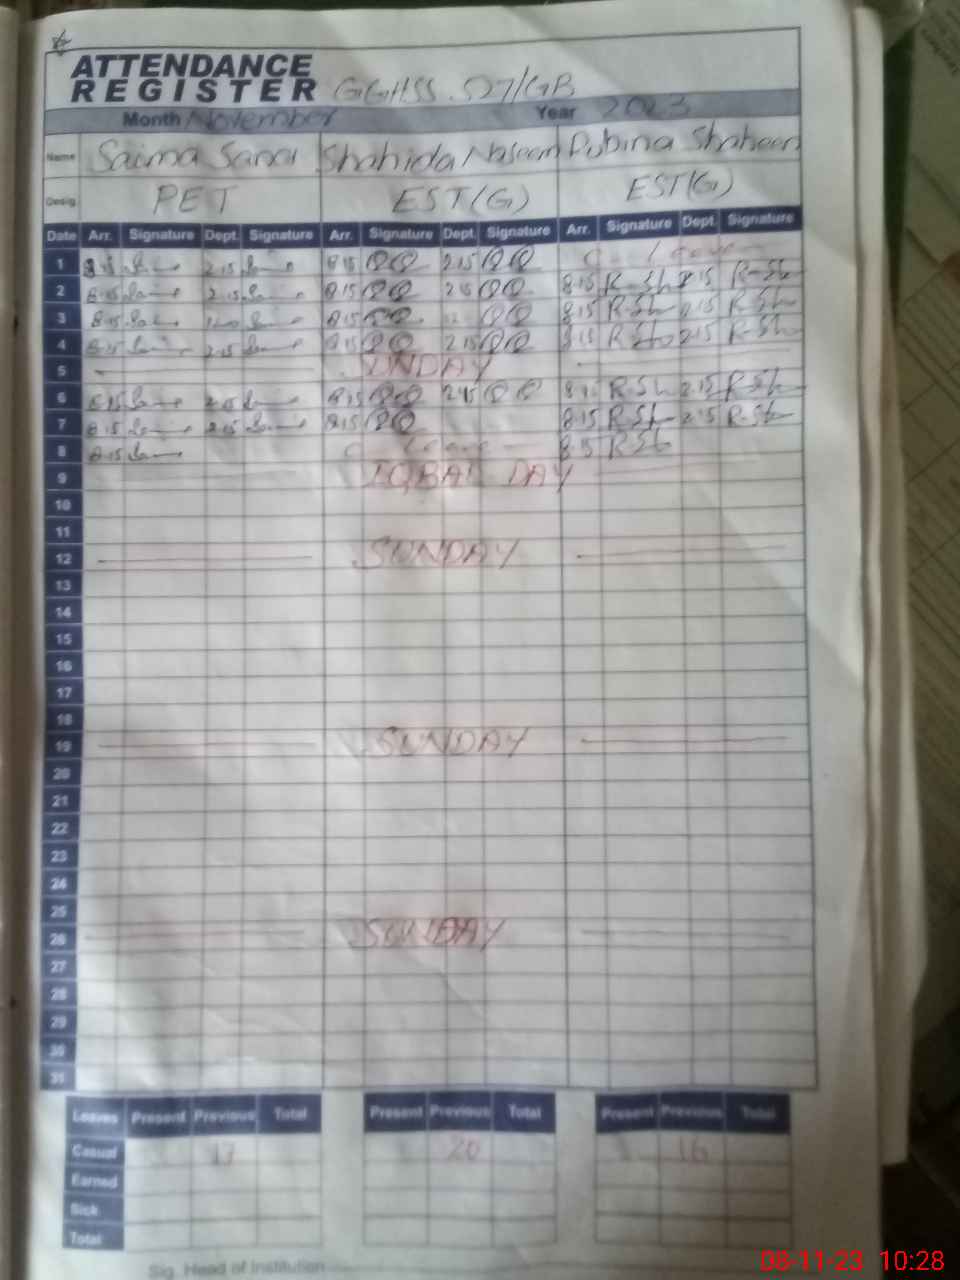 ATTENDANCE
REGISTER GGHSS 527/GB
Month November Year 2023
Name Saima Shahida Naseem Rubina Shaheen
Desig. PET EST(G) EST(G)
Date Arr. Signature Dept. Signature Arr. Signature Dept. Signature Arr. Signature Dept. Signature
1 8.15 2.15 8.15 2.15 C. Leave
2 8.15 2.15 8.15 2.15 8.15 R-Sh 2.15 R-Sh
3 8.15 8.15 12 8.15 R-Sh R-Sh
4 8.15 2.15 8.15 2.15 8.15 R-Sh 2.15 R-Sh
5 SUNDAY
6 8.15 8.15 8.15 R-Sh 2.15 R-Sh
7 8.15 2.15 8.15 8.15 R-Sh 2.15 R-Sh
8 8.15 C Leave 8.15 R-Sh
9 IQBAL DAY
10
11
12 SUNDAY
13
14
15
16
17
18
19 SUNDAY
20
21
22
23
24
25
26 SUNDAY
27
28
29
30
31
Leaves Present Previous Total Present Previous Total Present Previous Total
Casual 20 16
Earned
Sick
Total
Sig. Head of Institution
08-11-23 10:28